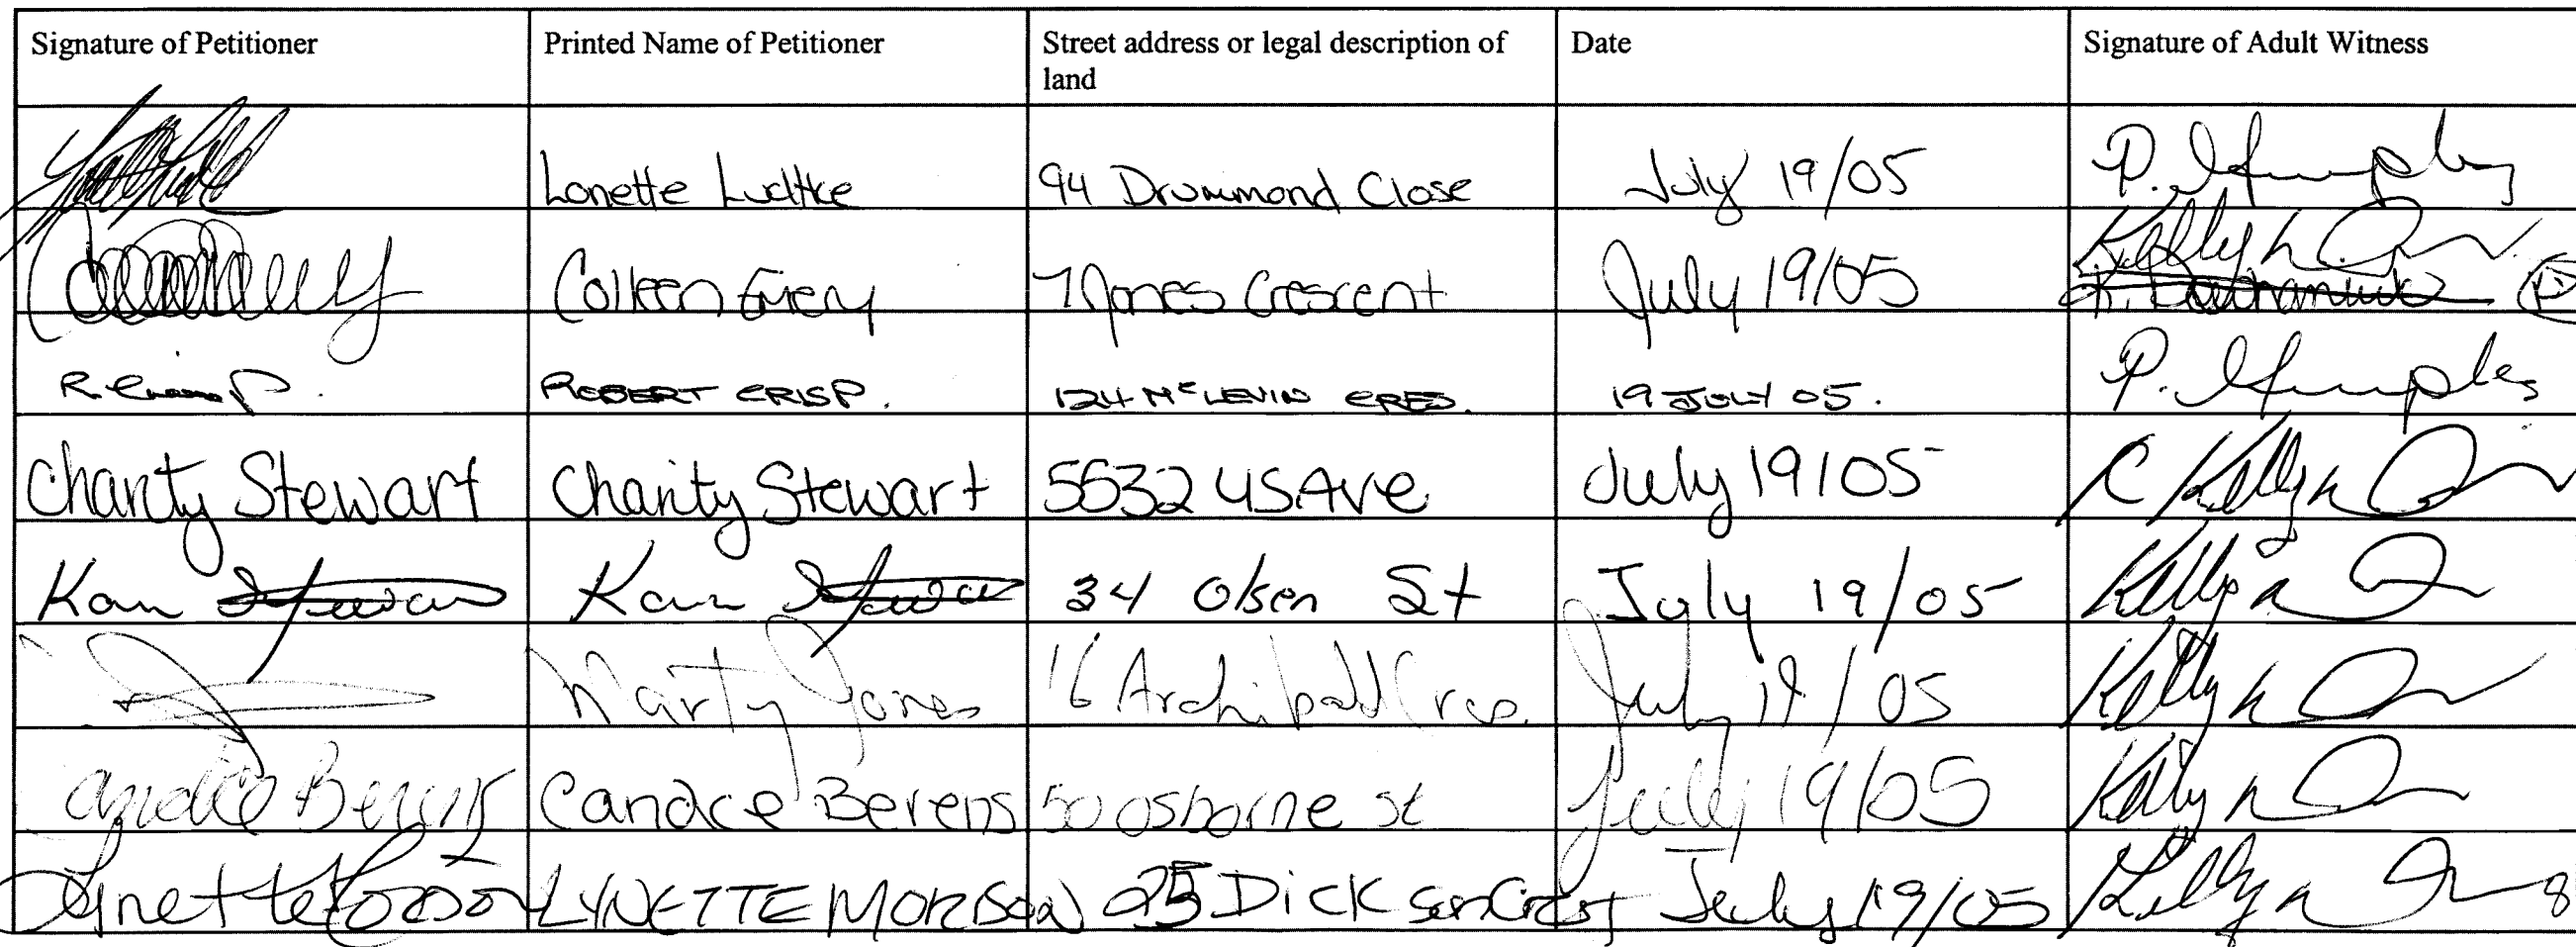 Signature of Petitioner Printed Name of Petitioner Street address or legal description of land Date Signature of Adult Witness
Lonette Ludtke 94 Drummond Close July 19/05 P.
Colleen Emery 7 Jones Crescent July 19/05 Kelly
R. Crisp. ROBERT CRISP. 124 McLEVIN CRES. 19 JULY 05. P.
Charity Stewart Charity Stewart 5532 45 AVe July 19/05 Kelly
34 Olsen St July 19/05 Kelly
Marty Jones 16 Archibald Cres. July 19/05 Kelly
Candice Berens Candace Berens 50 osborne st July 19/05 Kelly
Lynette LYNETTE MORISON 25 Dickson Cresf July 19/05 Kelly
8